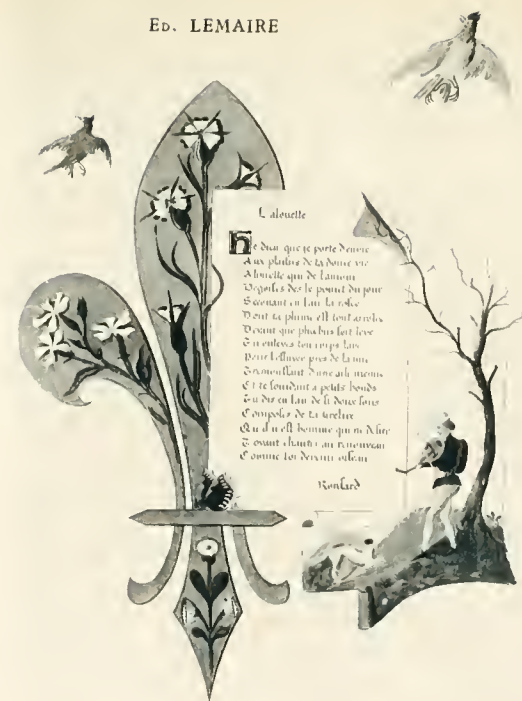 ED. LEMAIRE
L alouette
He dieu que je porte denvie
Aux plaisirs de ta douce vie
Alouette qui de lamour
Degoises des le point du jour
Secouant en lair la rosee
Dont ta plume est tout arrosee
Devant que phebus soit leve
Tu enleves ton corps lave
Pour lessuyer pres de la nue
Tremoussant dune aile menue
Et te sourdant a petits bonds
Tu dis en lair de si doux sons
Composes de ta tirelire
Qu il n est homme qui ne desire
Toyant chanter au renouveau
Comme toi devenir oiseau
Ronsard